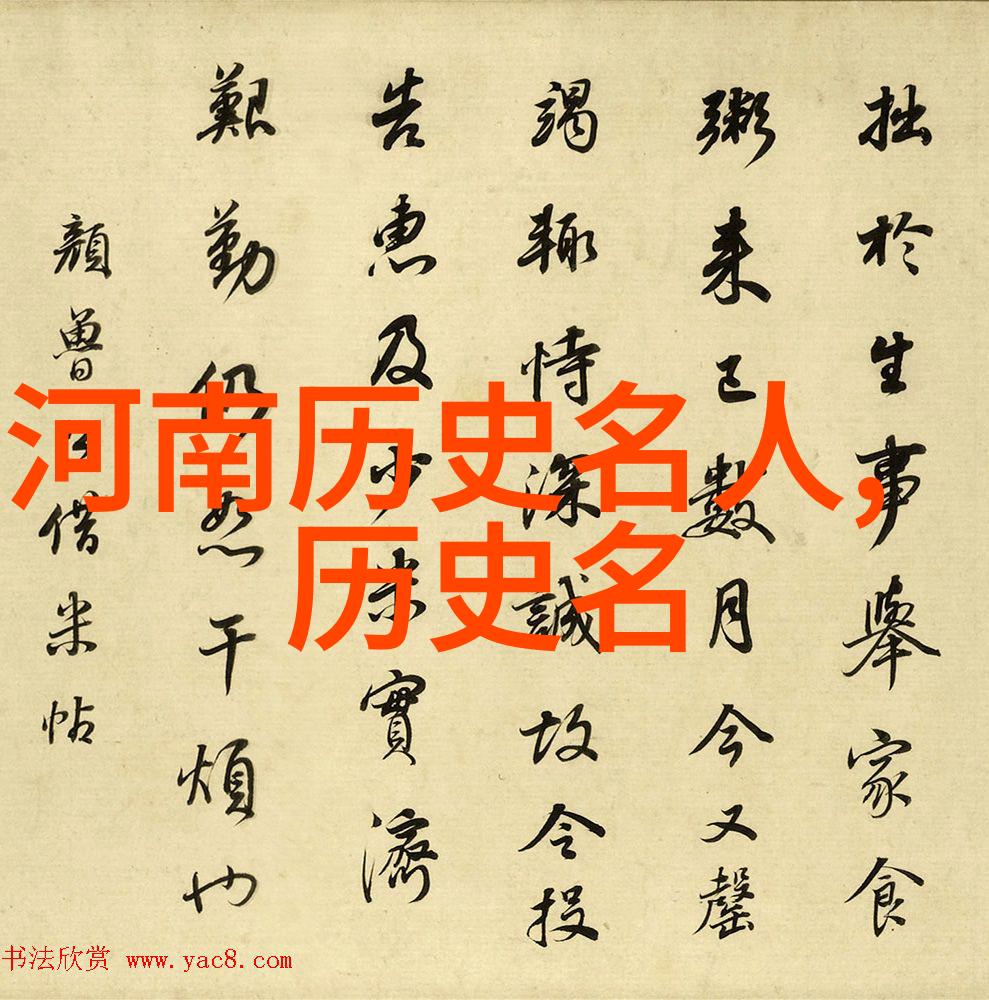 拙於生事舉家食
粥来已數月今又罄
竭輙恃深誠故令投
告惠及少米實濟
艱勤仍恕干煩也
顏魯公借米帖
河南历史名人，
历史名
书法欣赏 www.yac8.com